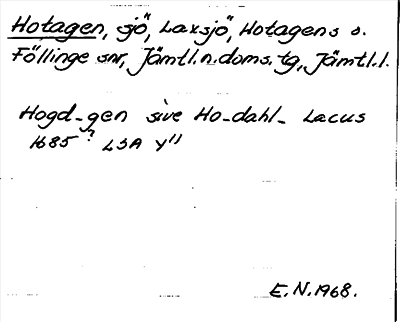 Hotagen, sjö, Laxsjö, Hotagens s.
Föllinge snr, Jämtl.n.doms.tg, Jämtl.l.
Hogd-gen sive Ho-dahl- Lacus
1685? LSA Y11
E.N.1968.